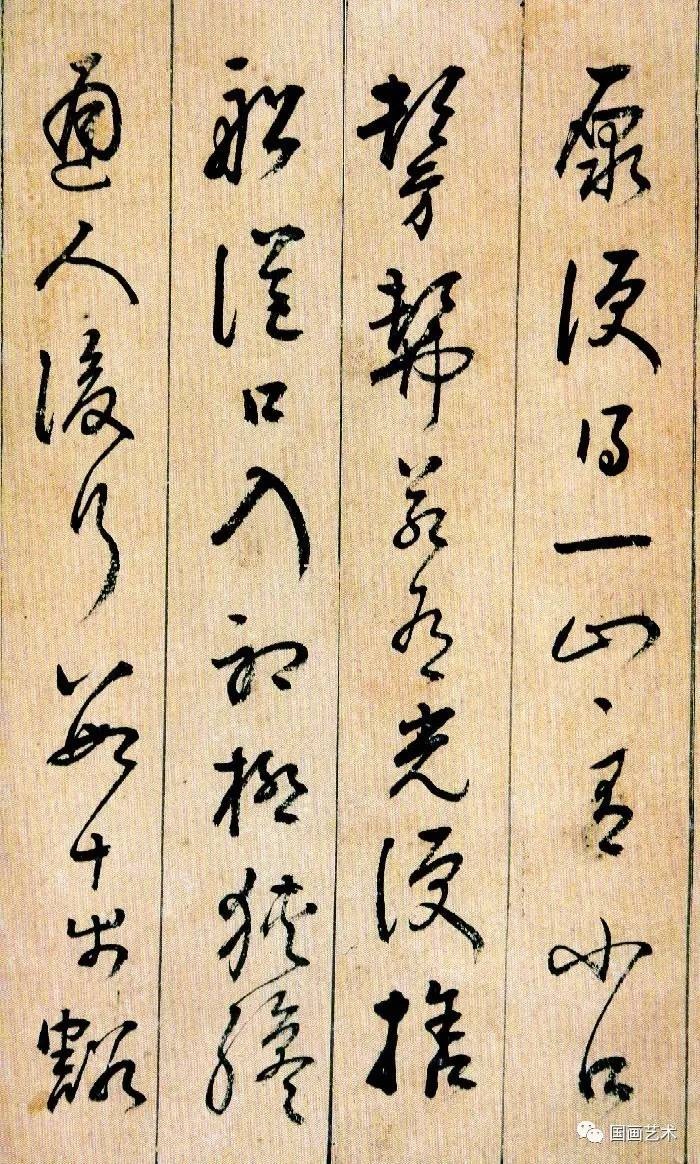 源便得一山山有小口
髣髴若有光便捨
船從口入初極狹纔
通人復行數十步豁
国画艺术